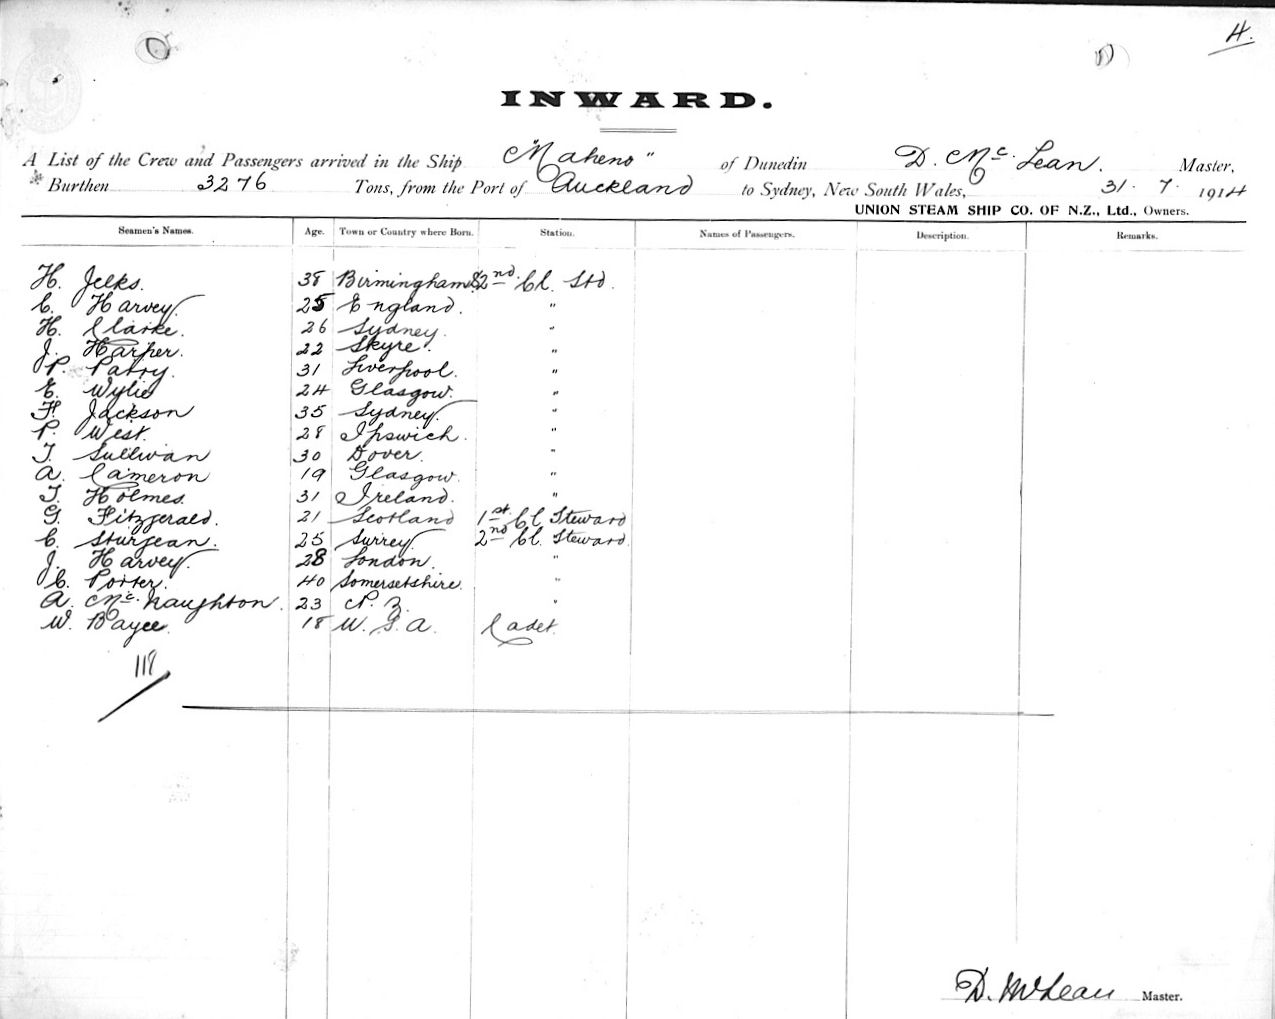 4.
INWARD.
A List of the Crew and Passengers arrived in the Ship "Maheno" of Dunedin D. McLean. Master,
Burthen 3276 Tons, from the Port of Auckland to Sydney, New South Wales, 31. 7. 1914
UNION STEAM SHIP CO. OF N.Z., Ltd., Owners.
Seamen's Names. Age. Town or Country where Born. Station. Names of Passengers. Description. Remarks.
H. Jelks. 38 Birmingham 2nd Cl. Std.
C. Harvey 25 England. "
H. Clarke. 26 Sydney. "
J. Harper. 22 Skyre. "
P. Parry. 31 Liverpool. "
E. Wylie 24 Glasgow. "
F. Jackson 35 Sydney. "
P. West. 28 Ipswich. "
T. Sullivan 30 Dover. "
A. Cameron 19 Glasgow. "
T. Holmes. 31 Ireland. "
G. Fitzgerald. 21 Scotland 1st Cl Steward
C. Sturjean. 25 Surrey 2nd Cl. Steward.
J. Harvey. 28 London. "
C. Porter. 40 Somersetshire. "
A. McNaughton. 23 N. Z. "
W. Bayee. 18 W. S. A. Cadet.
118
D. McLean Master.